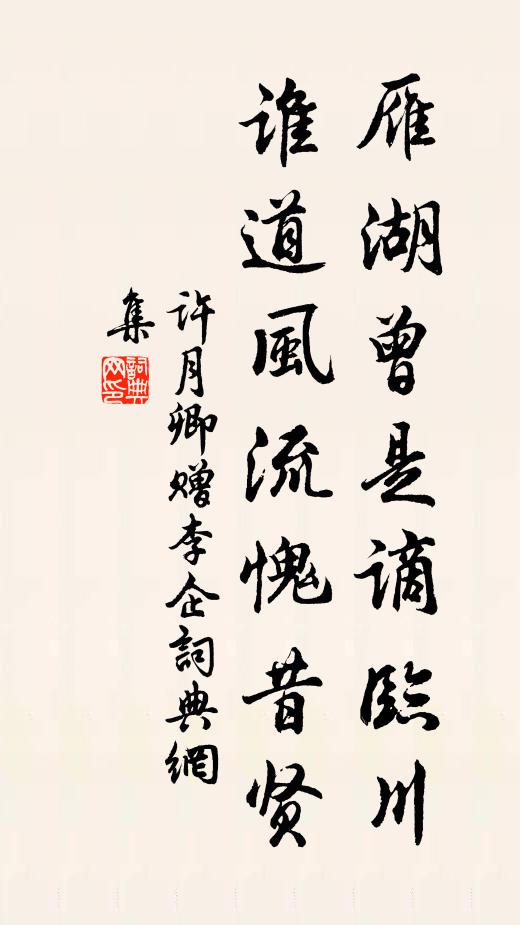 雁湖曾是谪臨川
谁道風流愧昔贤
许月卿赠李企詞典網
集
詞典网印